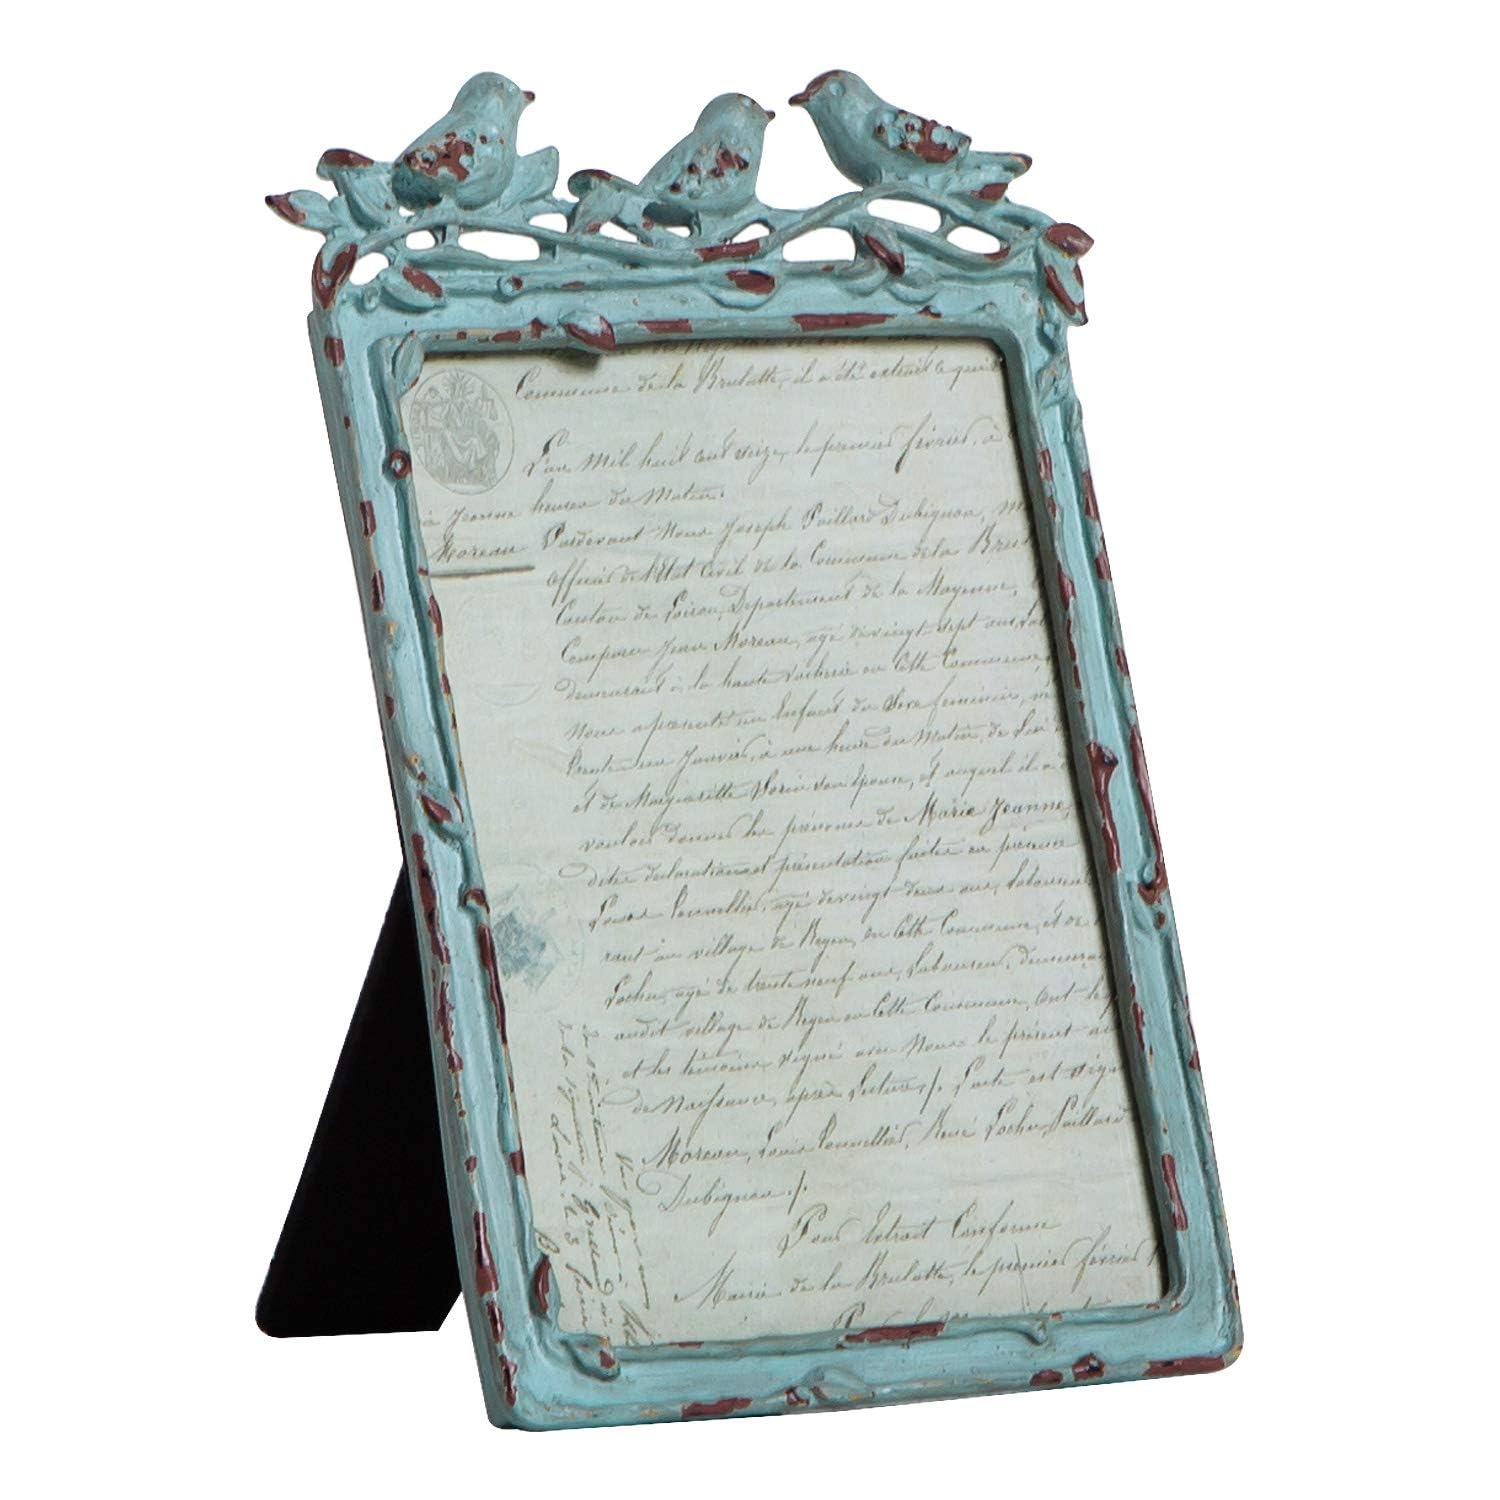 Commune de la Brulatte, il a été extrait ce qui
L'an mil huit cent seize, le premier février, à
heures du Matin.
à Jeanne
Moreau
Pardevant Nous Joseph Paillard Dubignon, m
officier de l'Etat Civil de la Commune de la Brul
Canton de Loiron, Département de la Mayenne,
Comparu Jean Moreau, agé de vingt sept ans, Lab
demeurant à la haute en cette Commune,
Nous a présenté un Enfant du Sexe féminin, né
trente un Janvier, à une heure du Matin, de lui d
et de Marguerite son épouse, et auquel il a d
vouloir donner les prénoms de Marie Jeanne,
dites déclaration et présentation faites en présence
Louis agé de vingt deux ans, laboureur
rant au village de en cette Commune, et de
Lochu, agé de trente neuf ans, Laboureur, demeurant
audit village de en cette Commune, ont le p
et les témoins signé avec Nous le présent ac
de Naissance, après Lecture. /. L'acte est signé
Moreau, Louis René Lochu, Paillard
Dubignon /.
Pour Extrait Conforme
Mairie de la Brulatte, le premier février